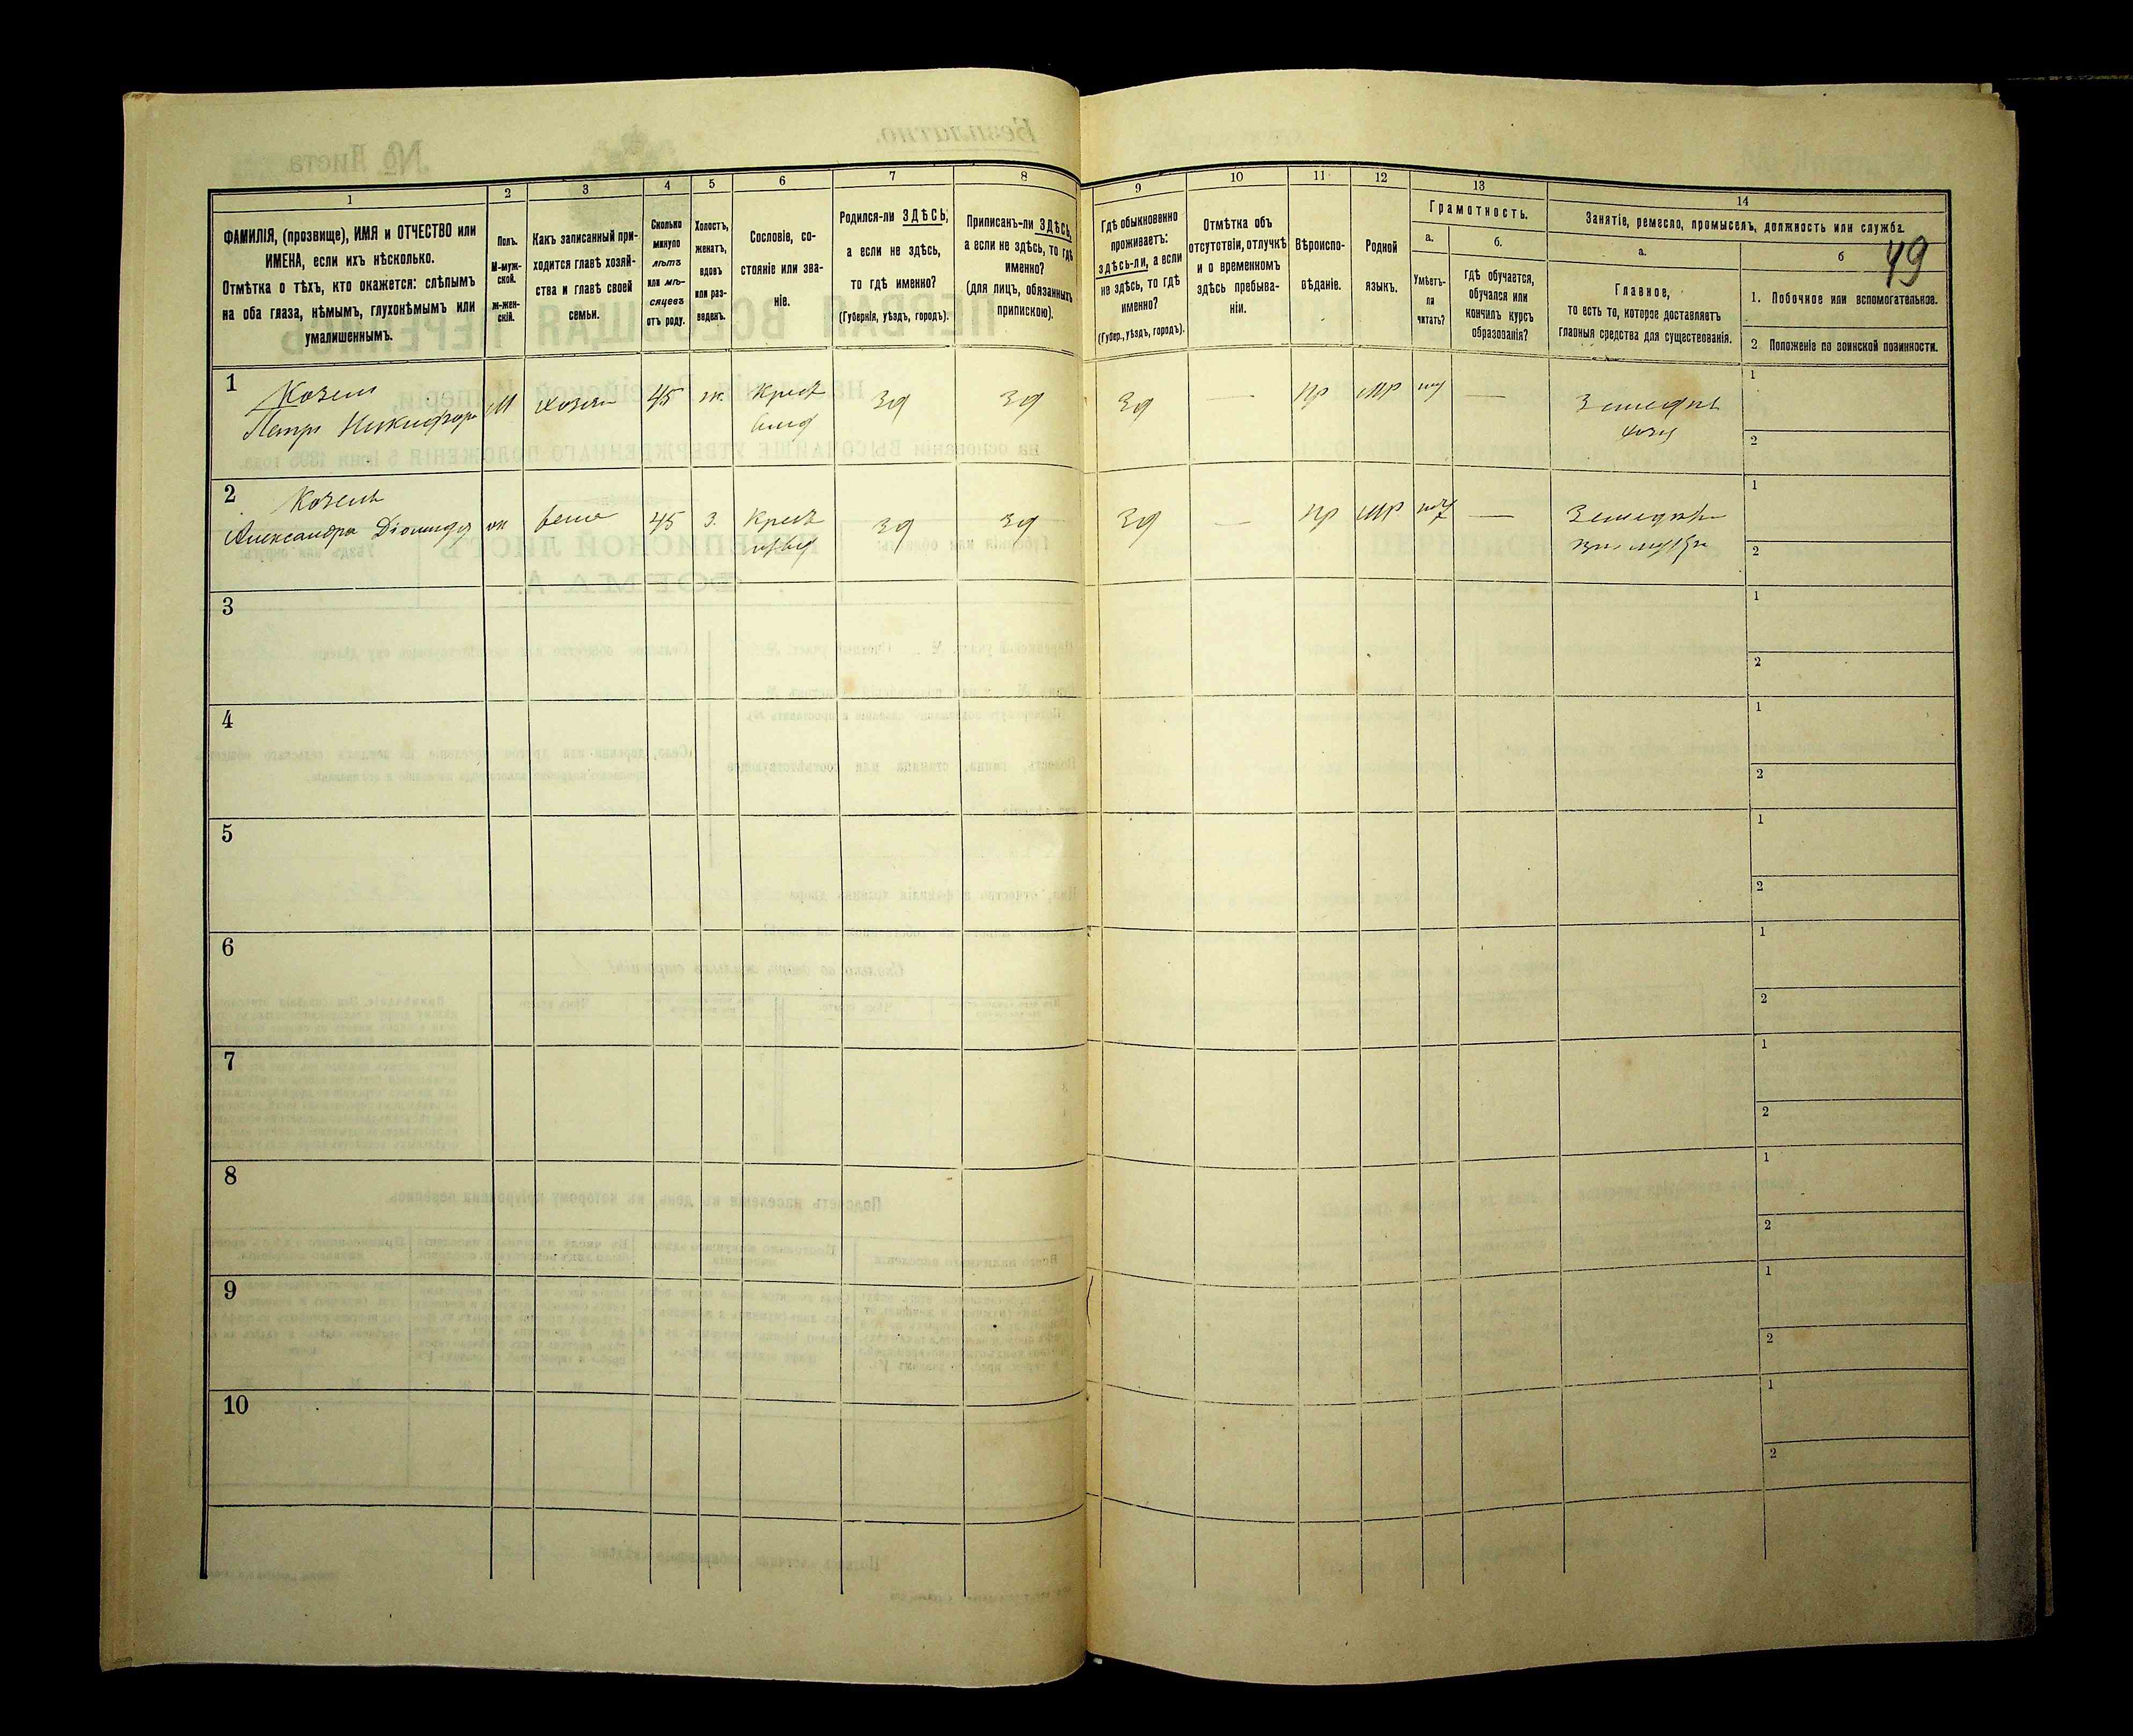 1
2
3
4
5
6
7
8
9
10
11
12
13
14
ФАМИЛІЯ, (прозвище), ИМЯ и ОТЧЕСТВО или
ИМЕНА, если ихъ нѣсколько.
Отмѣтка о тѣхъ, кто окажется: слѣпымъ
на оба глаза, нѣмымъ, глухонѣмымъ или
умалишеннымъ.
Полъ.
М-муж-
ской.
Ж-жен-
скій.
Какъ записанный при-
ходится главѣ хозяй-
ства и главѣ своей
семьи.
Сколько
минуло
лѣтъ
или мѣ-
сяцевъ
отъ роду.
Холостъ,
женатъ,
вдовъ
или раз-
веденъ.
Сословіе, со-
стояніе или зва-
ніе.
Родился-ли ЗДѢСЬ,
а если не здѣсь,
то гдѣ именно?
(Губернія, уѣздъ, городъ).
Приписанъ-ли ЗДѢСЬ,
а если не здѣсь, то гдѣ
именно?
(для лицъ, обязанныхъ
припискою).
Гдѣ обыкновенно
проживаетъ:
здѣсь-ли, а если
не здѣсь, то гдѣ
именно?
(Губер., уѣздъ, городъ).
Отмѣтка объ
отсутствіи, отлучкѣ
и о временномъ
здѣсь пребыва-
ніи.
Вѣроиспо-
вѣданіе.
Родной
языкъ.
Грамотность.
а.
Умѣетъ-
ли
читать?
б.
гдѣ обучается,
обучался или
кончилъ курсъ
образованія?
Занятіе, ремесло, промыселъ, должность или служба.
а.
Главное,
то есть то, которое доставляетъ
главныя средства для существованія.
б
49
1. Побочное или вспомогательное.
2 Положеніе по воинской повинности.
1
Козелъ
Петръ Никифоро
М
хозяи
45
ж.
Крест
зд
зд
зд
—
пр
мр
—
Земледѣл
хозя
1
2
2
Козелъ
Александра Діомидо
ж
жена
45
з.
Крест
зд
зд
зд
—
пр
мр
—
Земледѣл
при муж
1
2
3
1
2
4
1
2
5
1
2
6
1
2
7
1
2
8
1
2
9
1
2
10
1
2